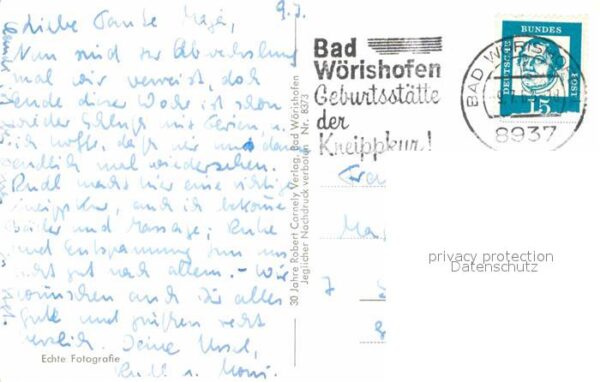 9.7.
Liebe Tante Maja,
Nun sind zur Abwechslung
mal wir verreist, doch
Ende dieser Woche ist schon
wieder Schluß mit Ferien, u.
ich hoffe, daß wir uns dann
endlich mal wiedersehen.
Rudl macht hier eine richtige
Kneippkur, und ich bekomme
Bäder und Massage; Ruhe
und Entspannung tun uns
recht gut nach allem. – Wir
wünschen auch Dir alles
Gute und grüßen recht
herzlich. Deine Ursel,
Rudl u.
Echte Fotografie
30 Jahre Robert Cornely Verlag, Bad Wörishofen
Jeglicher Nachdruck verboten Nr. 8372
Bad
Wörishofen
Geburtsstätte
der
Kneippkur!
BAD WÖRISHO
8937
DEUTSCHE
BUNDES
POST
15
Frau
privacy protection
Datenschutz